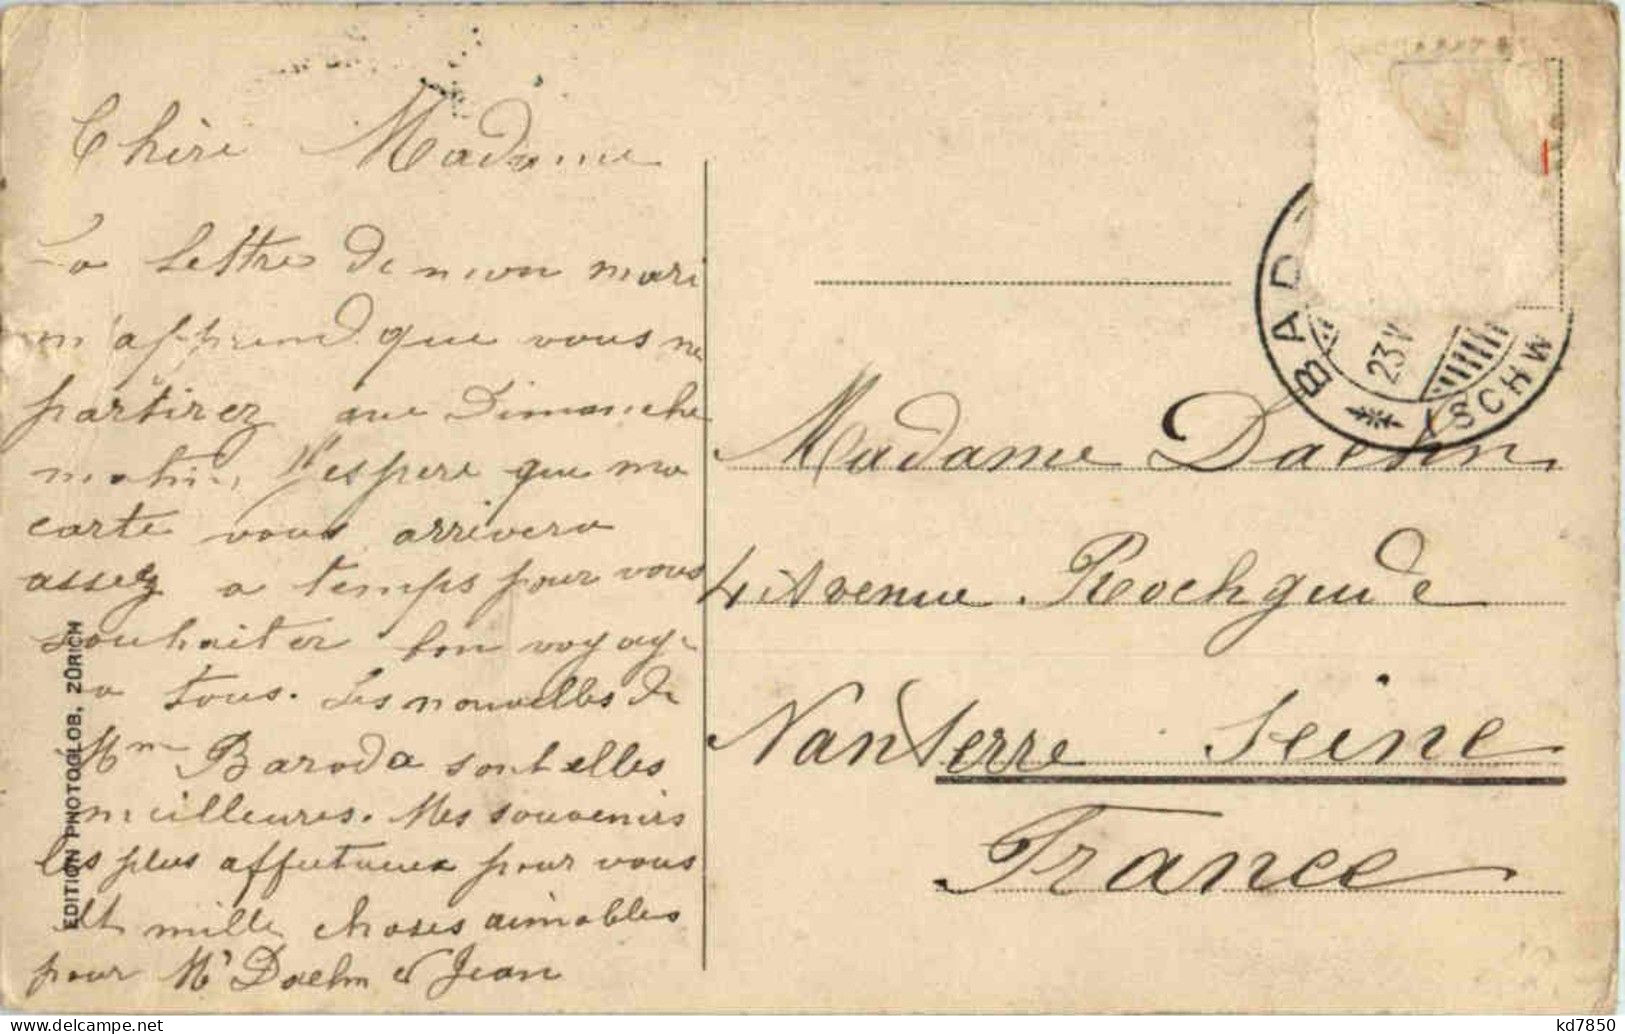 Chère Madame
La lettre de mon mari
m'apprend que vous ne
partirez que Dimanche
matin, J'espere que ma
carte vous arrivera
assez a temps pour vous
souhaiter bon voyage
a tous. Les nouvelles de
Mme Baroda sont elles
meilleures. Mes souvenirs
les plus affectueux pour vous
et mille choses aimables
pour Mr Daehn et Jean
EDITION PHOTOGLOB, ZÜRICH
BAD
23 V
SCHW
Madame Daehn
4 Avenue Rochgude
Nanterre Seine
France
kd7850